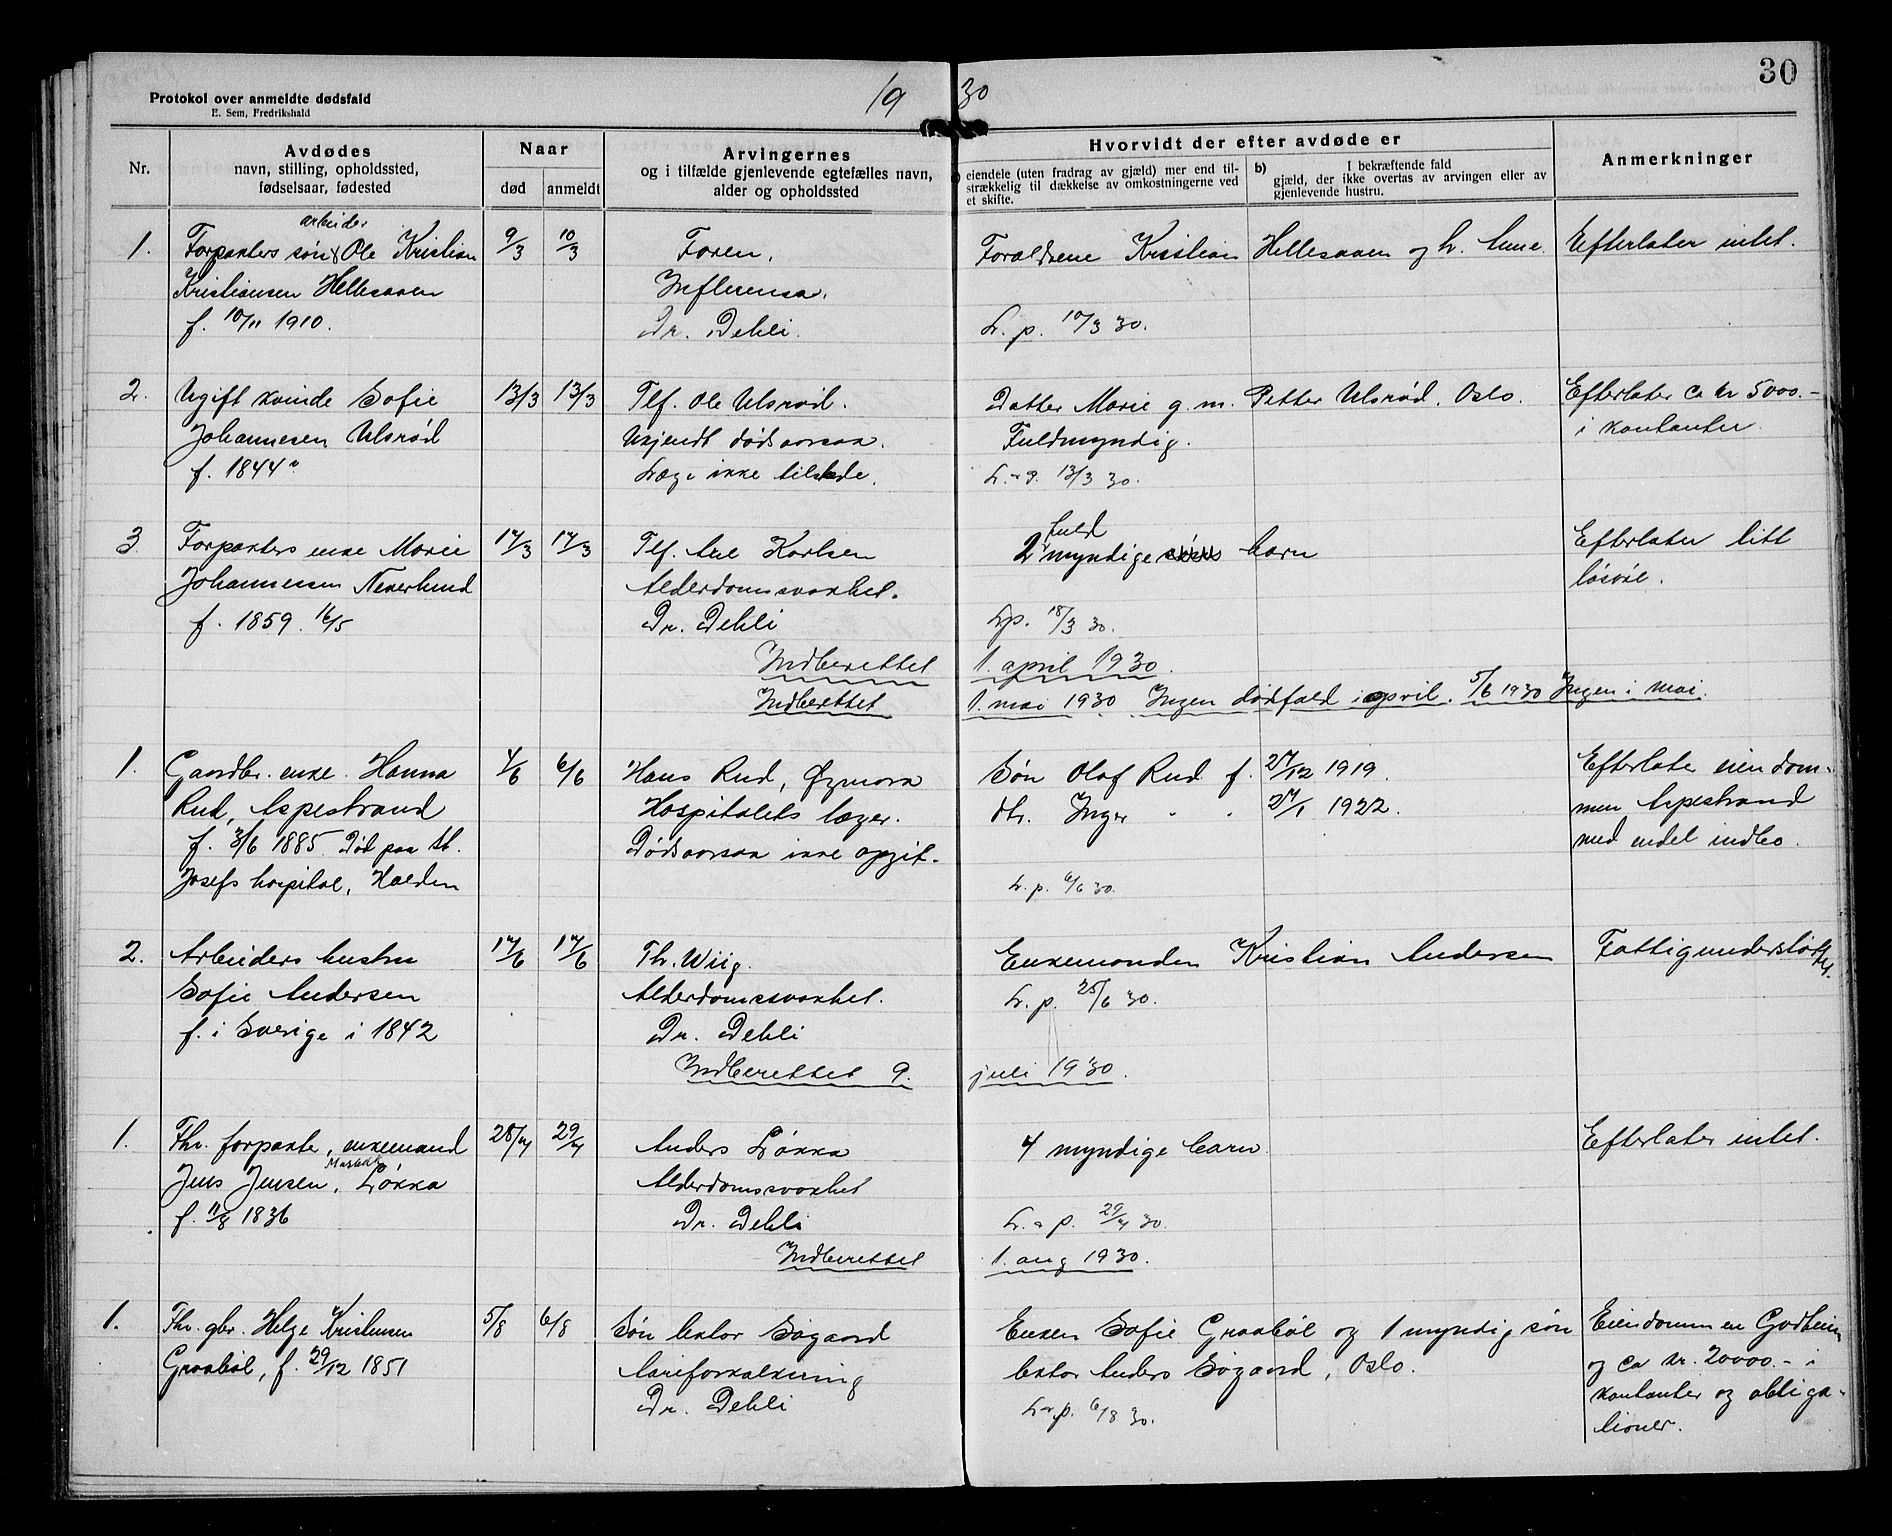 30
Protokol over anmeldte dødsfald
E. Sem, Fredrikshald
19 30
Nr.
Avdødes
navn, stilling, opholdssted,
fødselsaar, fødested
Naar
død anmeldt
Arvingernes
og i tilfælde gjenlevende egtefælles navn,
alder og opholdssted
Hvorvidt der efter avdøde er
eiendele (uten fradrag av gjæld) mer end til-
strækkelig til dækkelse av omkostningerne ved
et skifte.
b) I bekræftende fald
gjæld, der ikke overtas av arvingen eller av
gjenlevende hustru.
Anmerkninger
arbeider
1. Forpakters søn Ole Kristian 9/3 10/3 Faren. Forældrene Kristian Hellesaaen og h. Efterlater intet.
Kristiansen Hellesaaen Influensa.
f. 10/11 1910. Dr. Dehli. L. p. 10/3 30.
2. Ugift kvinde Sofie 13/3 13/3 Tlf. Ole Ulsrød. Datter Marie g. m. Petter Ulsrød, Oslo. Efterlater ca kr 5000.-
Johannesen Ulsrød Ukjendt dødsaarsak. Fuldmyndig. i kontanter.
f. 1844 Læge ikke tilstede. 13/3 30.
3. Forpakters enke Marie 17/3 17/3 Tlf. Karlsen 2 fuldmyndige barn Efterlater litt
Johannessen Neverlund Alderdomssvakhet. løsøre.
f. 1859. 16/5 Dr. Dehli L.p. 18/3 30.
Indberettet 1. april 1930.
Indberettet 1. mai 1930. Ingen dødfald i april. 5/6 1930 Ingen i mai.
1. Gaardbr. enke Hanna 4/6 6/6 Hans Rud, Søn Olaf Rud f. 27/12 1919. Efterlater eiendom-
Rud, Aspestrand Hospitalets læger. dtr. Inger " " 27/1 1922. men Aspestrand
f. 3/6 1885. Død paa St. Dødsaarsak ikke opgit. med endel indbo.
Josefs hospital, Halden L. p. 6/6 30.
2. Arbeiders hustru 17/6 17/6 Th. Wiig. Enkemanden Kristian Andersen Fattigunderstøttet.
Sofie Andersen Alderdomssvakhet. L. p. 25/6 30.
f. i Sverige i 1842 Dr. Dehli
Indberettet 9. juli 1930.
1. Fhr. forpakter, enkemand 28/7 29/7 Anders Løkka 4 myndige barn. Efterlater intet.
Jens Jensen, Løkka Alderdomssvakhet
f. 11/8 1836 Dr. Dehli L. p. 29/7 30.
Indberettet 1. aug 1930.
1. Fhr. gbr. Helge Kristensen 5/8 6/8 Søn lektor Søgaard Enken Sofie Graabøl og 1 myndig søn Eiendommen Godheim
Graabøl, f. 29/12 1851 Aareforkalkning lektor Anders Søgaard, Oslo. og ca kr. 20000.- i
Dr. Dehli L. p. 6/8 30. kontanter og obliga-
tioner.